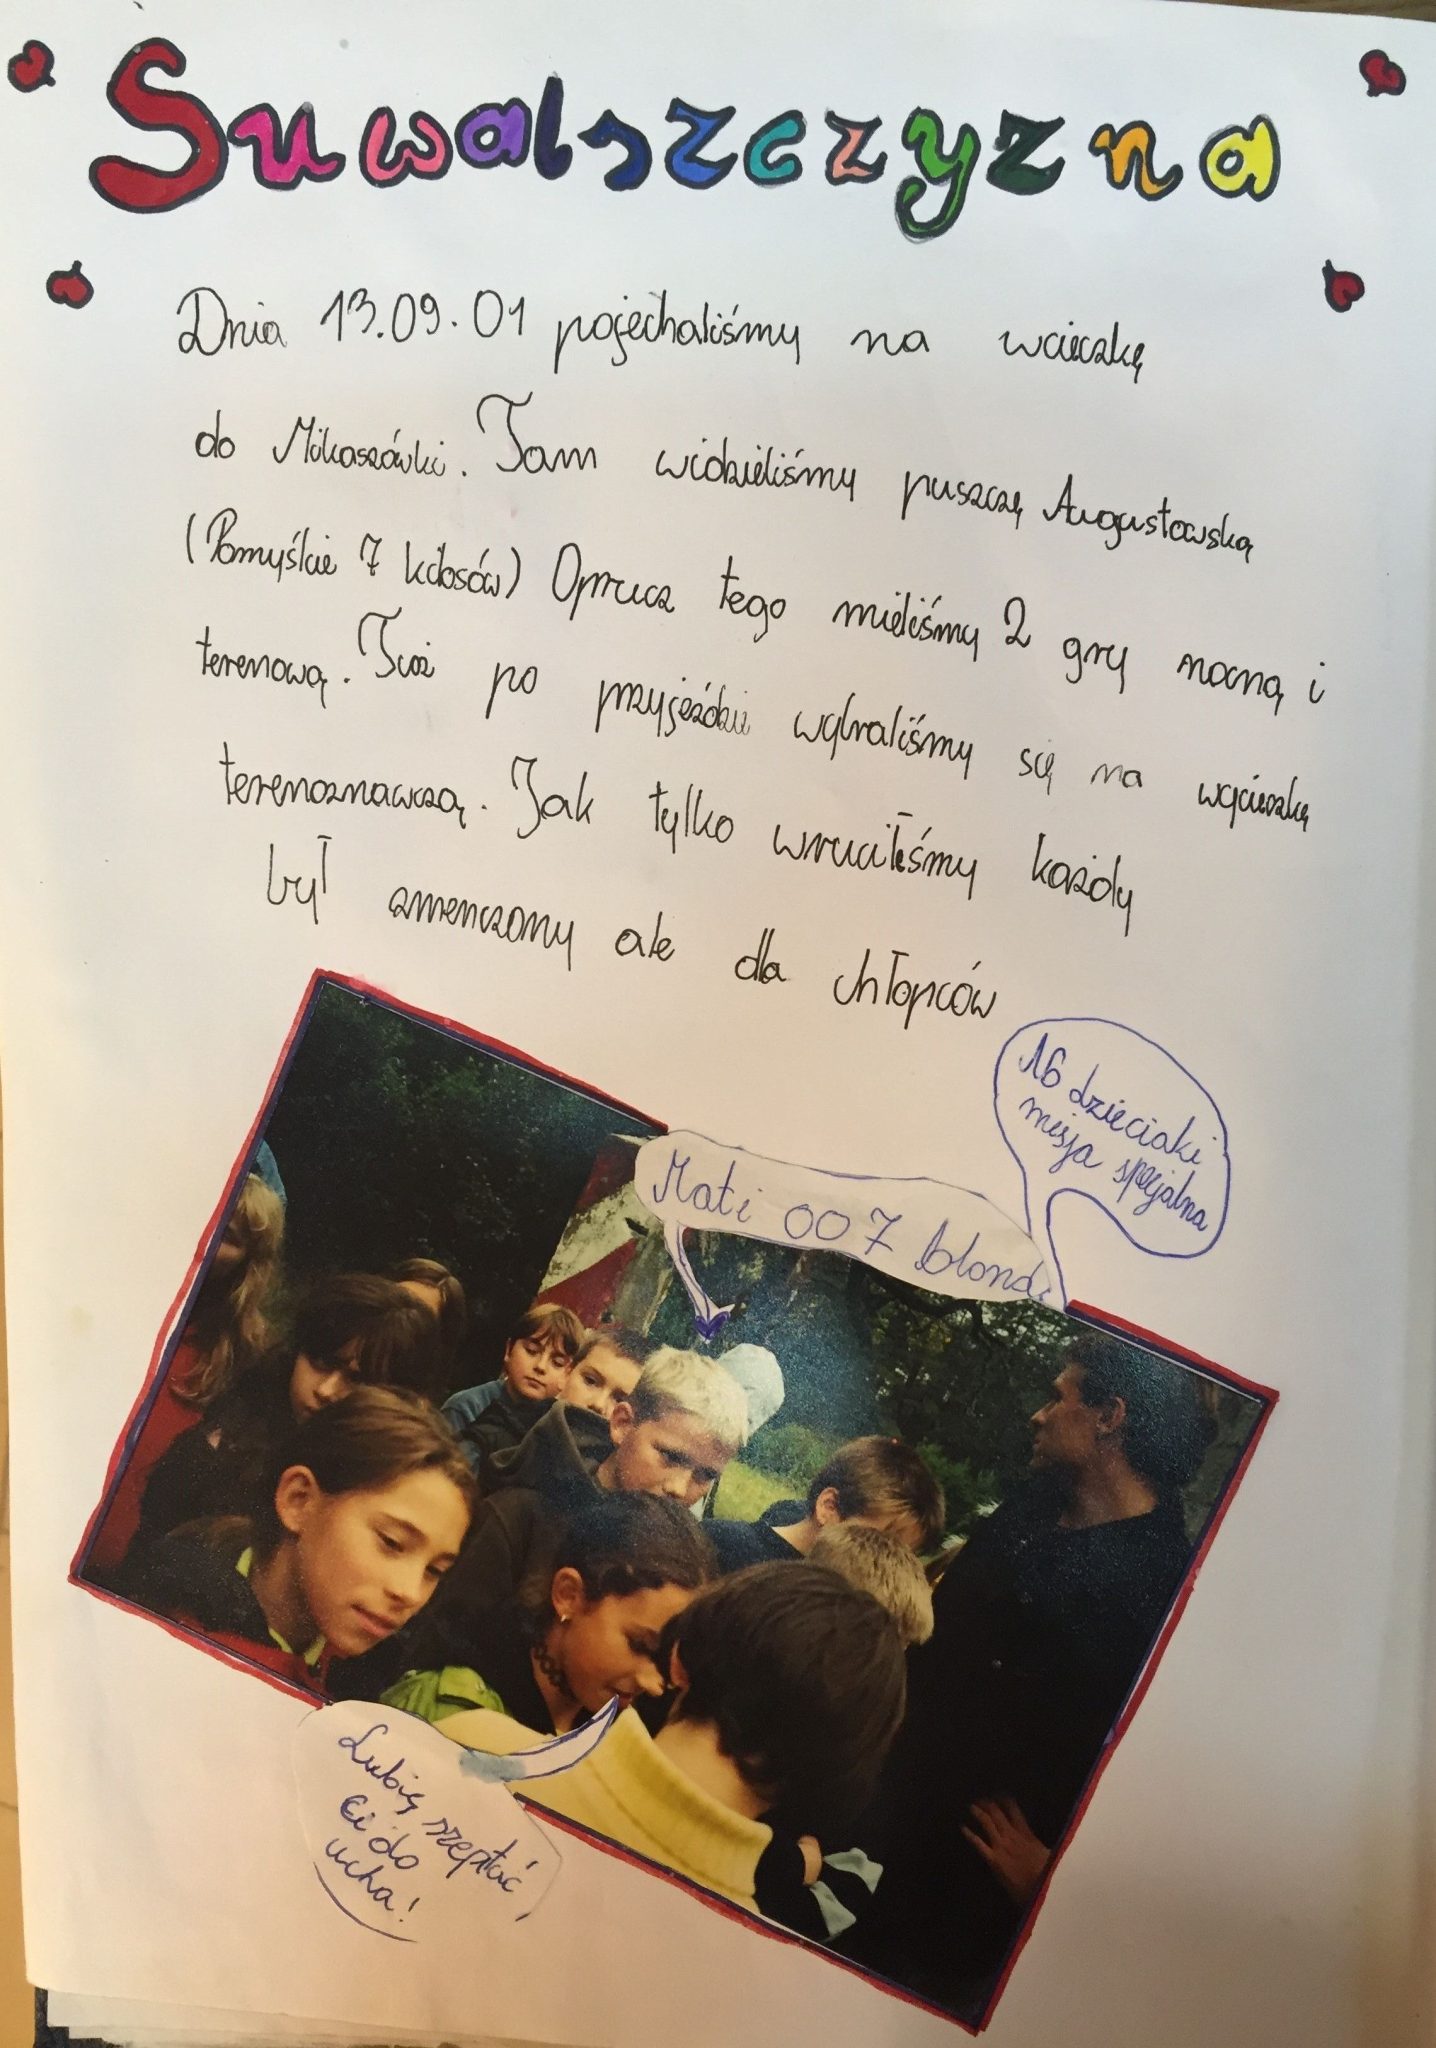 Suwalszczyzna
Dnia 13.09.01 pojechaliśmy na wcieczkę
do Mikaszówki. Tam widzieliśmy puszczę Augustowską
(Pomyślcie 7 kilosów) Oprucz tego mieliśmy 2 gry nocną i
terenową. Tuż po przyjeździe wybraliśmy się na wycieszkę
terenoznawczą. Jak tylko wruciliśmy każdy
był zmenczony ale dla chłopców
16 dzieciaki
misja specjalna
Mati 007 blond
Lubię szeptać
Ci do
ucha!